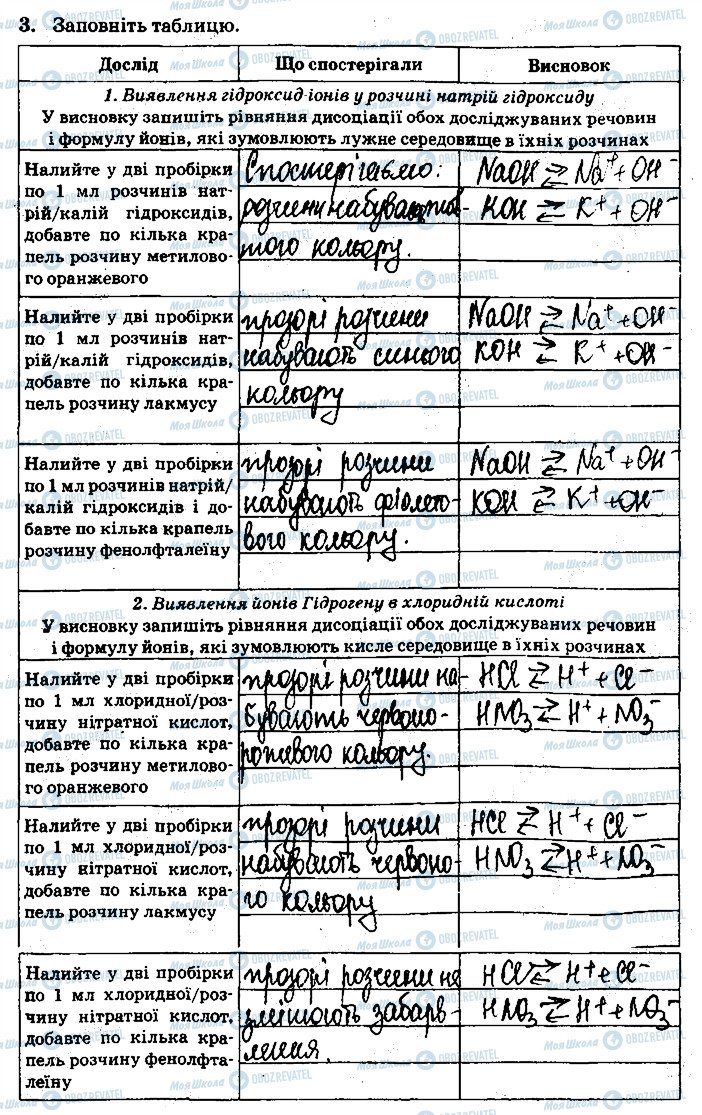 3. Заповніть таблицю.
Дослід Що спостерігали Висновок
1. Виявлення гідроксид-іонів у розчині натрій гідроксиду
У висновку запишіть рівняння дисоціації обох досліджуваних речовин
і формулу йонів, які зумовлюють лужне середовище в їхніх розчинах
Налийте у дві пробірки
по 1 мл розчинів нат-
рій/калій гідроксидів,
добавте по кілька кра-
пель розчину метилово-
го оранжевого
Спостерігаємо:
розчини набувають
того кольору.
NaOH ⇄ Na⁺ + OH⁻
KOH ⇄ K⁺ + OH⁻
Налийте у дві пробірки
по 1 мл розчинів нат-
рій/калій гідроксидів,
добавте по кілька кра-
пель розчину лакмусу
прозорі розчини
набувають синього
кольору
NaOH ⇄ Na⁺ + OH⁻
KOH ⇄ K⁺ + OH⁻
Налийте у дві пробірки
по 1 мл розчинів натрій/
калій гідроксидів і до-
бавте по кілька крапель
розчину фенолфталеїну
прозорі розчини
набувають фіолето-
вого кольору.
NaOH ⇄ Na⁺ + OH⁻
KOH ⇄ K⁺ + OH⁻
2. Виявлення йонів Гідрогену в хлоридній кислоті
У висновку запишіть рівняння дисоціації обох досліджуваних речовин
і формулу йонів, які зумовлюють кисле середовище в їхніх розчинах
Налийте у дві пробірки
по 1 мл хлоридної/роз-
чину нітратної кислот,
добавте по кілька кра-
пель розчину метилово-
го оранжевого
прозорі розчини на-
бувають червоно-
рожевого кольору.
HCl ⇄ H⁺ + Cl⁻
HNO₃ ⇄ H⁺ + NO₃⁻
Налийте у дві пробірки
по 1 мл хлоридної/роз-
чину нітратної кислот,
добавте по кілька кра-
пель розчину лакмусу
прозорі розчини
набувають червоно-
го кольору
HCl ⇄ H⁺ + Cl⁻
HNO₃ ⇄ H⁺ + NO₃⁻
Налийте у дві пробірки
по 1 мл хлоридної/роз-
чину нітратної кислот,
добавте по кілька кра-
пель розчину фенолфта-
леїну
прозорі розчини не
змінюють забарв-
лення.
HCl ⇄ H⁺ + Cl⁻
HNO₃ ⇄ H⁺ + NO₃⁻
МояШкола OBOZREVATEL